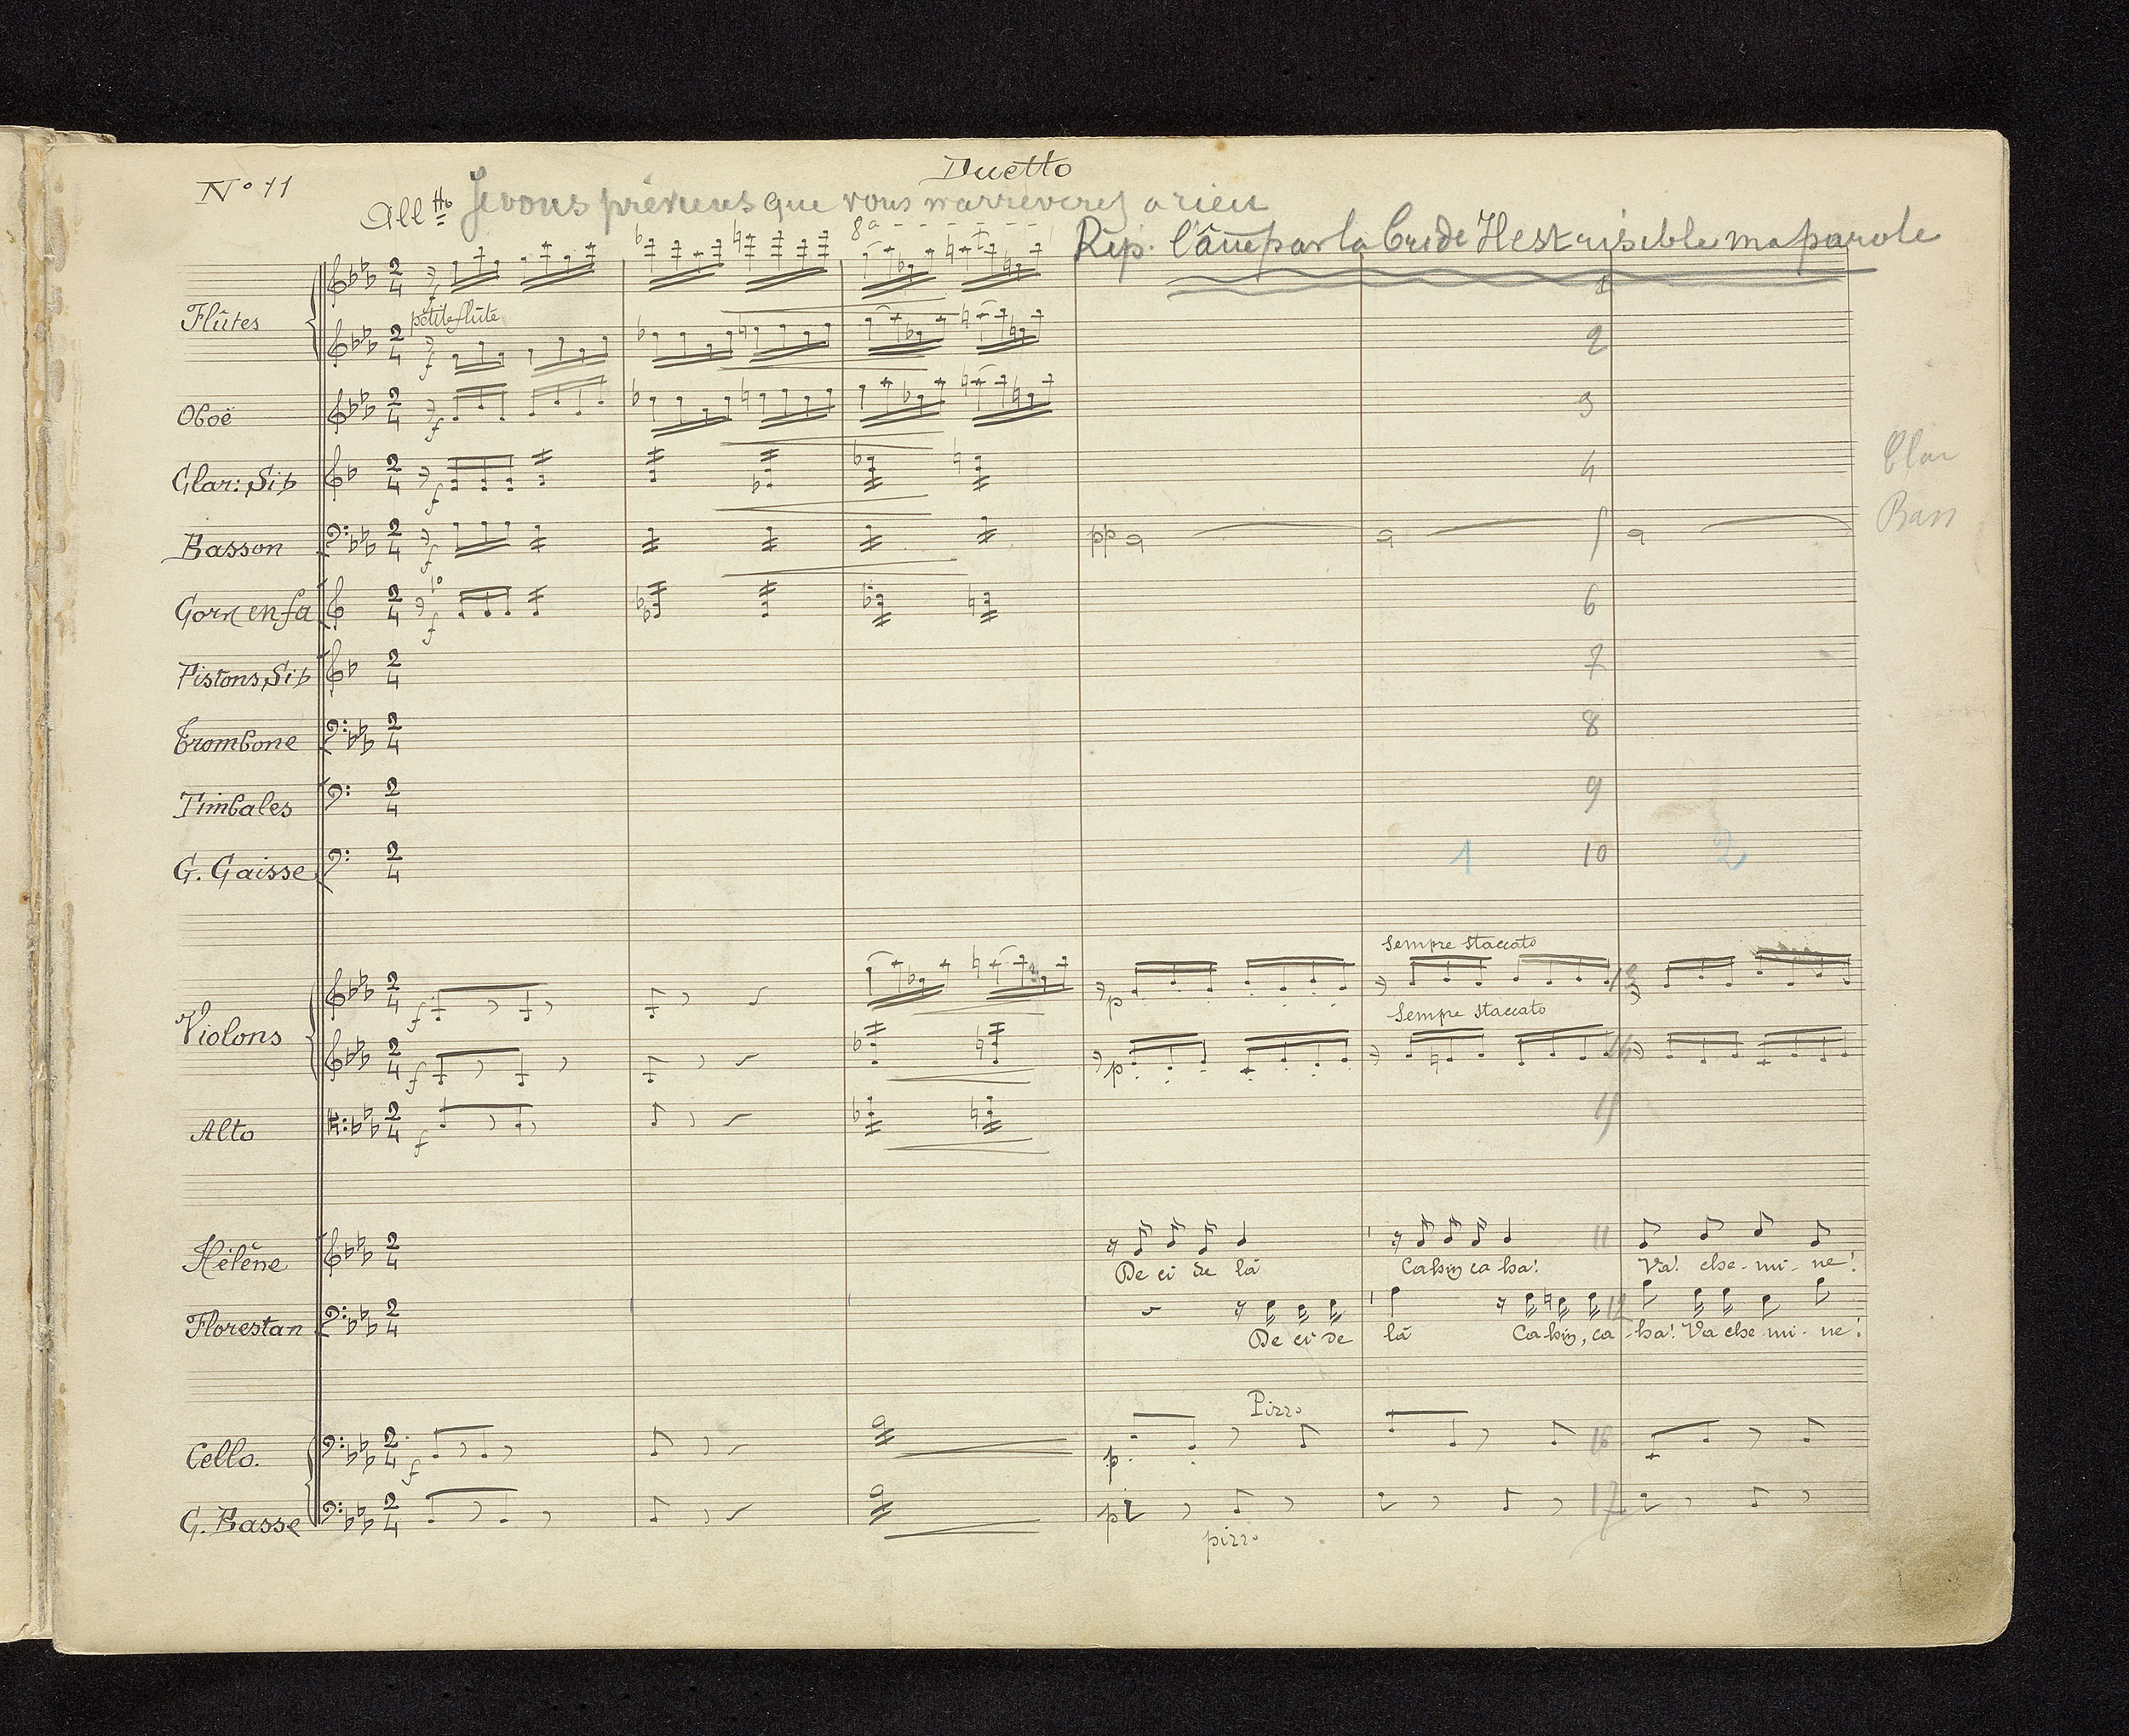 Nº 11
Duetto
Allᵗᵗᵒ Je vous préviens que vous n'arriverez a rien
Rép. l'âne par la bride Il est risible ma parole
Flûtes
petite flûte
8a
f
1
f
2
Oboë
f
3
Clar: Sib
f
4
Clar
Basson
f
pp
5
Bass
Corn en fa
1º
f
6
Pistons Sib
7
Trombone
8
Timbales
9
G. Caisse
1
10
2
Sempre staccato
Violons
f
p
13
Sempre staccato
f
p
14
Alto
f
15
Hélène
11
De ci de là Cahin ca ha! Va! che-mi-ne!
Florestan
12
De ci de là Cahin, ca-ha! Va che mi-ne!
Pizzo
Cello.
f
p
16
C. Basse
p
17
pizzo